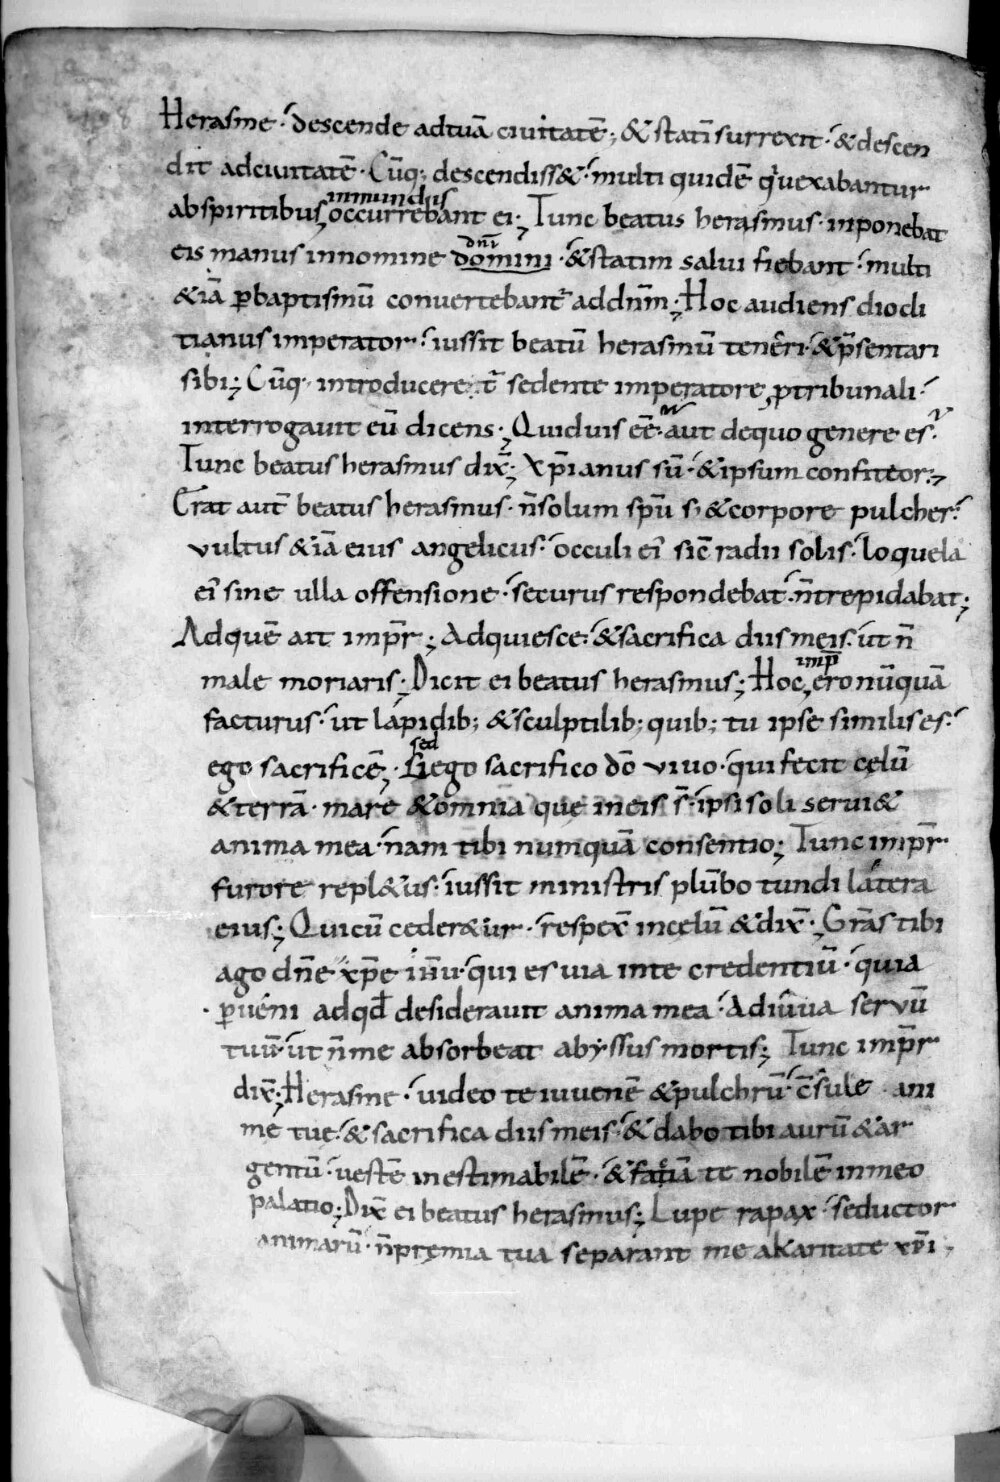 Herasme · descende adtuā ciuitatē; & statī surrexit · & descen
dit adciuitatē · Cūq; descendiss& · multi quidē q' uexabantur
abspiritibus immundis occurrebant ei; Tunc beatus herasmus · inponebat
eis manus innomine domini dn̄i · & statim salui fiebant · multi
& iā ꝑbaptismū convertebant' addn̄m; Hoc audiens diocli
tianus imperator · iussit beatū herasmū tenēri · & p̄sentari
sibi; Cūq · introducere t̄ sedente imperatore, ptribunali ·
interrogauit eū dicens; Quiduis eē · aut dequo genere es ·
Tunc beatus herasmus dix̄; Xp̄ianus sū · & ipsum confiteor;
Erat aut̄ beatus herasmus · n̄solum sp̄u s; & corpore pulcher ·
vultus & iā eius angelicus · occuli ei' sic̄ radii solis · loquela
ei' sine ulla offensione · securus respondebat · n̄trepidabat;
Adquē ait imp̄r; Adquiesce · & sacrifica diis meis · ut n̄
male moriaris; Dicit ei beatus herasmus; Hoc, imp̄ ero nūquā
facturus · ut lapidib; & sculptilib; quib; tu ipse similis es ·
ego sacrificē; sed ego sacrifico dō vivo · qui fecit cęlū
& terrā · mare & omnia quę ineis s̄ · ipsi soli serui&
anima mea · nam tibi numquā consentio; Tunc imp̄r
furore repl&us · iussit ministris plūbo tundi latera
eius; Quicū ceder&ur · respex̄ incęlū & dix̄ · Gr̄as tibi
ago dn̄e xp̄e · qui es uia inte credentiū · quia
ꝑuēni adqđ desiderauit anima mea · Adiuua servū
tuū · ut n̄ me absorbeat abyssus mortis; Tunc imp̄r
dix̄; Herasme · uideo te iuuenē & pulchrū · c̄sule ani
mę tuę · & sacrifica diis meis · & dabo tibi aurū & ar
gentū · uestē inestimabilē · & faciā te nobilē inmeo
palatio; Dix̄ ei beatus herasmus; Lupe rapax · seductor
animarū · n̄pręmia tua separant me akaritate xp̄i;